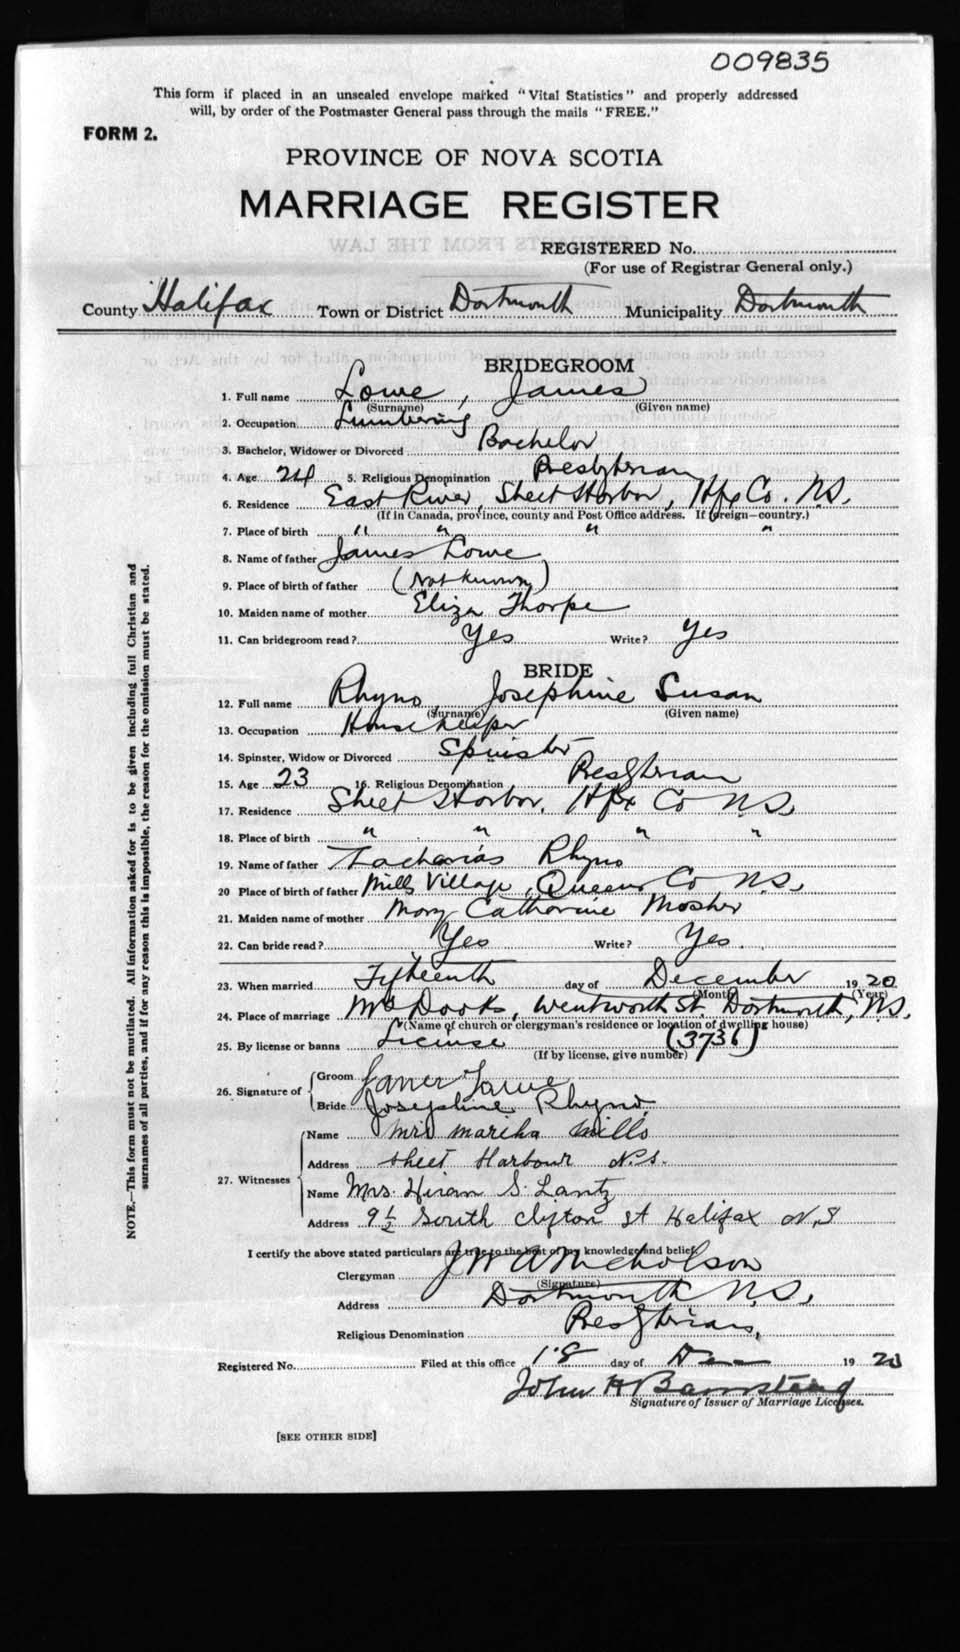 009835
This form if placed in an unsealed envelope marked "Vital Statistics" and properly addressed
will, by order of the Postmaster General pass through the mails "FREE."
FORM 2.
PROVINCE OF NOVA SCOTIA
MARRIAGE REGISTER
REGISTERED No.
(For use of Registrar General only.)
County Halifax Town or District Dartmouth Municipality Dartmouth
BRIDEGROOM
1. Full name Lowe, James
(Surname) (Given name)
2. Occupation Lumbering
3. Bachelor, Widower or Divorced Bachelor
4. Age 24 5. Religious Denomination Presbyterian
6. Residence East River, Sheet Harbor, Hfx Co. N.S.
(If in Canada, province, county and Post Office address. If foreign—country.)
7. Place of birth " " " "
8. Name of father James Lowe
9. Place of birth of father (Not Known)
10. Maiden name of mother Eliza Thorpe
11. Can bridegroom read? Yes Write? Yes
BRIDE
12. Full name Rhyno Josephine Susan
(Surname) (Given name)
13. Occupation Housekeeper
14. Spinster, Widow or Divorced Spinster
15. Age 23 16. Religious Denomination Presbyterian
17. Residence Sheet Harbor, Hfx Co N.S.
18. Place of birth " " " "
19. Name of father Zacharias Rhyno
20 Place of birth of father Mills Village, Queens Co N.S.
21. Maiden name of mother Mary Catharine Mosher
22. Can bride read? Yes Write? Yes.
23. When married Fifteenth day of December 1920
(Month) (Year)
24. Place of marriage Mrs Dooks, Wentworth St. Dartmouth, N.S.
(Name of church or clergyman's residence or location of dwelling house)
25. By license or banns License (3736)
(If by license, give number)
26. Signature of Groom James Lowe
Bride Josephine Rhyno.
27. Witnesses Name Mrs Martha Mills
Address Sheet Harbour N.S.
Name Mrs. Hiram S. Lantz
Address 9½ South Clifton St Halifax N.S
I certify the above stated particulars are true to the best of my knowledge and belief.
Clergyman J W A Nicholson
(Signature)
Address Dartmouth N.S.
Religious Denomination Presbyterian,
Registered No. Filed at this office 18 day of Dec 19 20
John H
Signature of Issuer of Marriage Licenses.
[SEE OTHER SIDE]
NOTE.—This form must not be mutilated. All information asked for is to be given including full Christian and
surnames of all parties, and if for any reason this is impossible, the reason for the omission must be stated.